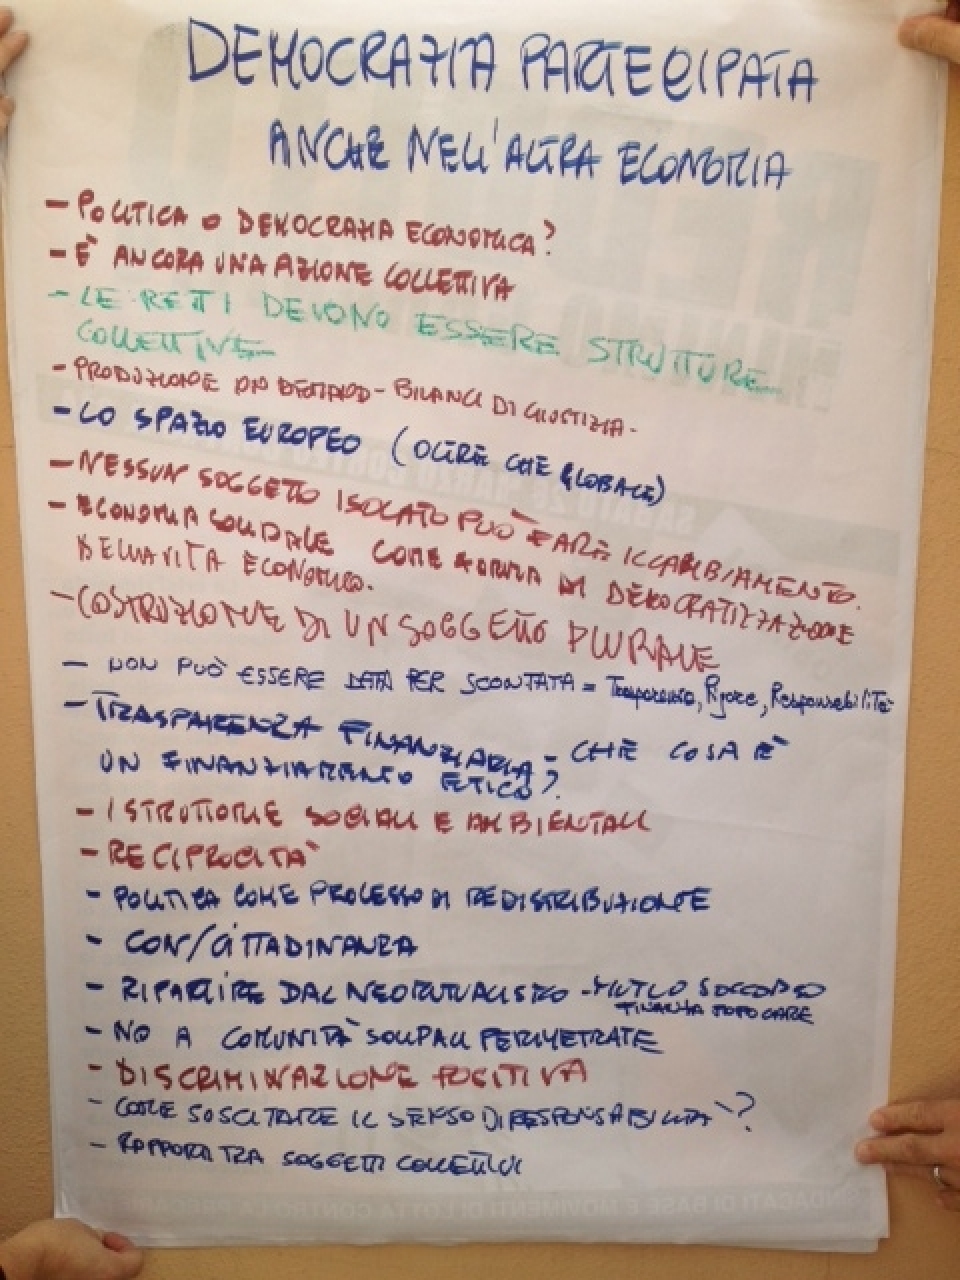 DEMOCRAZIA PARTECIPATA
ANCHE NELL'ALTRA ECONOMIA
- POLITICA O DEMOCRAZIA ECONOMICA?
- È ANCORA UNA AZIONE COLLETTIVA
- LE RETI DEVONO ESSERE STRUTTURE
COLLETTIVE
- PRODUZIONE ON DEMAND - BILANCI DI GIUSTIZIA -
- LO SPAZIO EUROPEO (OLTRE CHE GLOBALE)
- NESSUN SOGGETTO ISOLATO PUÒ FARE IL CAMBIAMENTO.
- ECONOMIA SOLIDALE COME FORMA DI DEMOCRATIZZAZIONE
DELLA VITA ECONOMICA.
- COSTRUZIONE DI UN SOGGETTO PLURALE
- NON PUÒ ESSERE DATA PER SCONTATA = Trasparenza, Rigore, Responsabilità
- TRASPARENZA FINANZIARIA - CHE COSA È
UN FINANZIAMENTO ETICO?
- ISTRUTTORIE SOCIALI E AMBIENTALI
- RECIPROCITÀ
- POLITICA COME PROCESSO DI REDISTRIBUZIONE
- CON/CITTADINANZA
- RIPARTIRE DAL NEOMUTUALISMO - MUTUO SOCCORSO
FINANZA POPOLARE
- NO A COMUNITÀ SOLIDALI PERIMETRATE
- DISCRIMINAZIONE POSITIVA
- COME SUSCITARE IL SENSO DI RESPONSABILITÀ?
- RAPPORTI TRA SOGGETTI COLLETTIVI